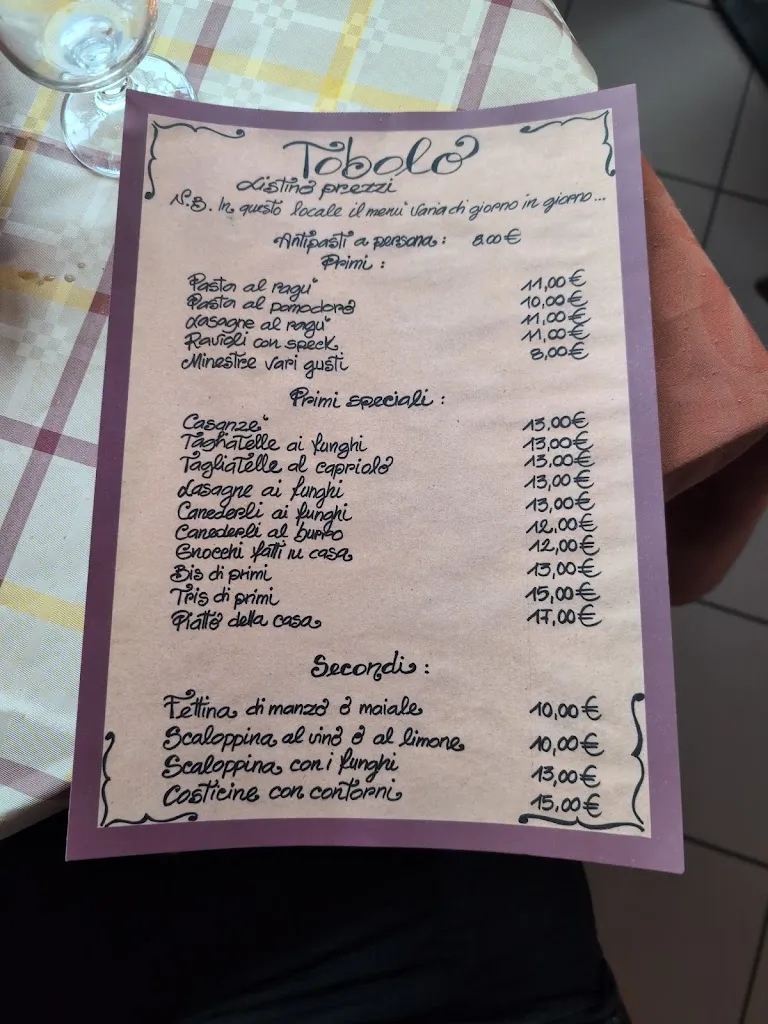 Tobolo
Listino prezzi
N.B. In questo locale il menu' varia di giorno in giorno...
Antipasti a persona: 8.00€
Primi:
Pasta al ragu' 11,00€
Pasta al pomodoro 10,00€
Lasagne al ragu' 11,00€
Ravioli con speck 11,00€
Minestre vari gusti 8,00€
Primi speciali:
Casanze' 13,00€
Tagliatelle ai funghi 13,00€
Tagliatelle al capriolo 13,00€
Lasagne ai funghi 13,00€
Canederli ai funghi 13,00€
Canederli al burro 12,00€
Gnocchi fatti in casa 12,00€
Bis di primi 13,00€
Tris di primi 15,00€
Piatto della casa 17,00€
Secondi:
Fettina di manzo o maiale 10,00€
Scaloppina al vino o al limone 10,00€
Scaloppina con i funghi 13,00€
Costicine con contorni 15,00€